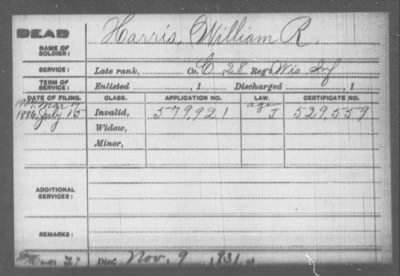 DEAD Harris, William R.
NAME OF
SOLDIER:
SERVICE: Late rank, Co. E, 28 Reg't Wis Inf
TERM OF
SERVICE: Enlisted , 1 Discharged , 1
DATE OF FILING. CLASS. APPLICATION NO. LAW. CERTIFICATE NO.
1886, July 15 Invalid, 579921 J 529559
Widow,
Minor,
ADDITIONAL
SERVICES:
REMARKS:
Died Nov. 9, 1931, at